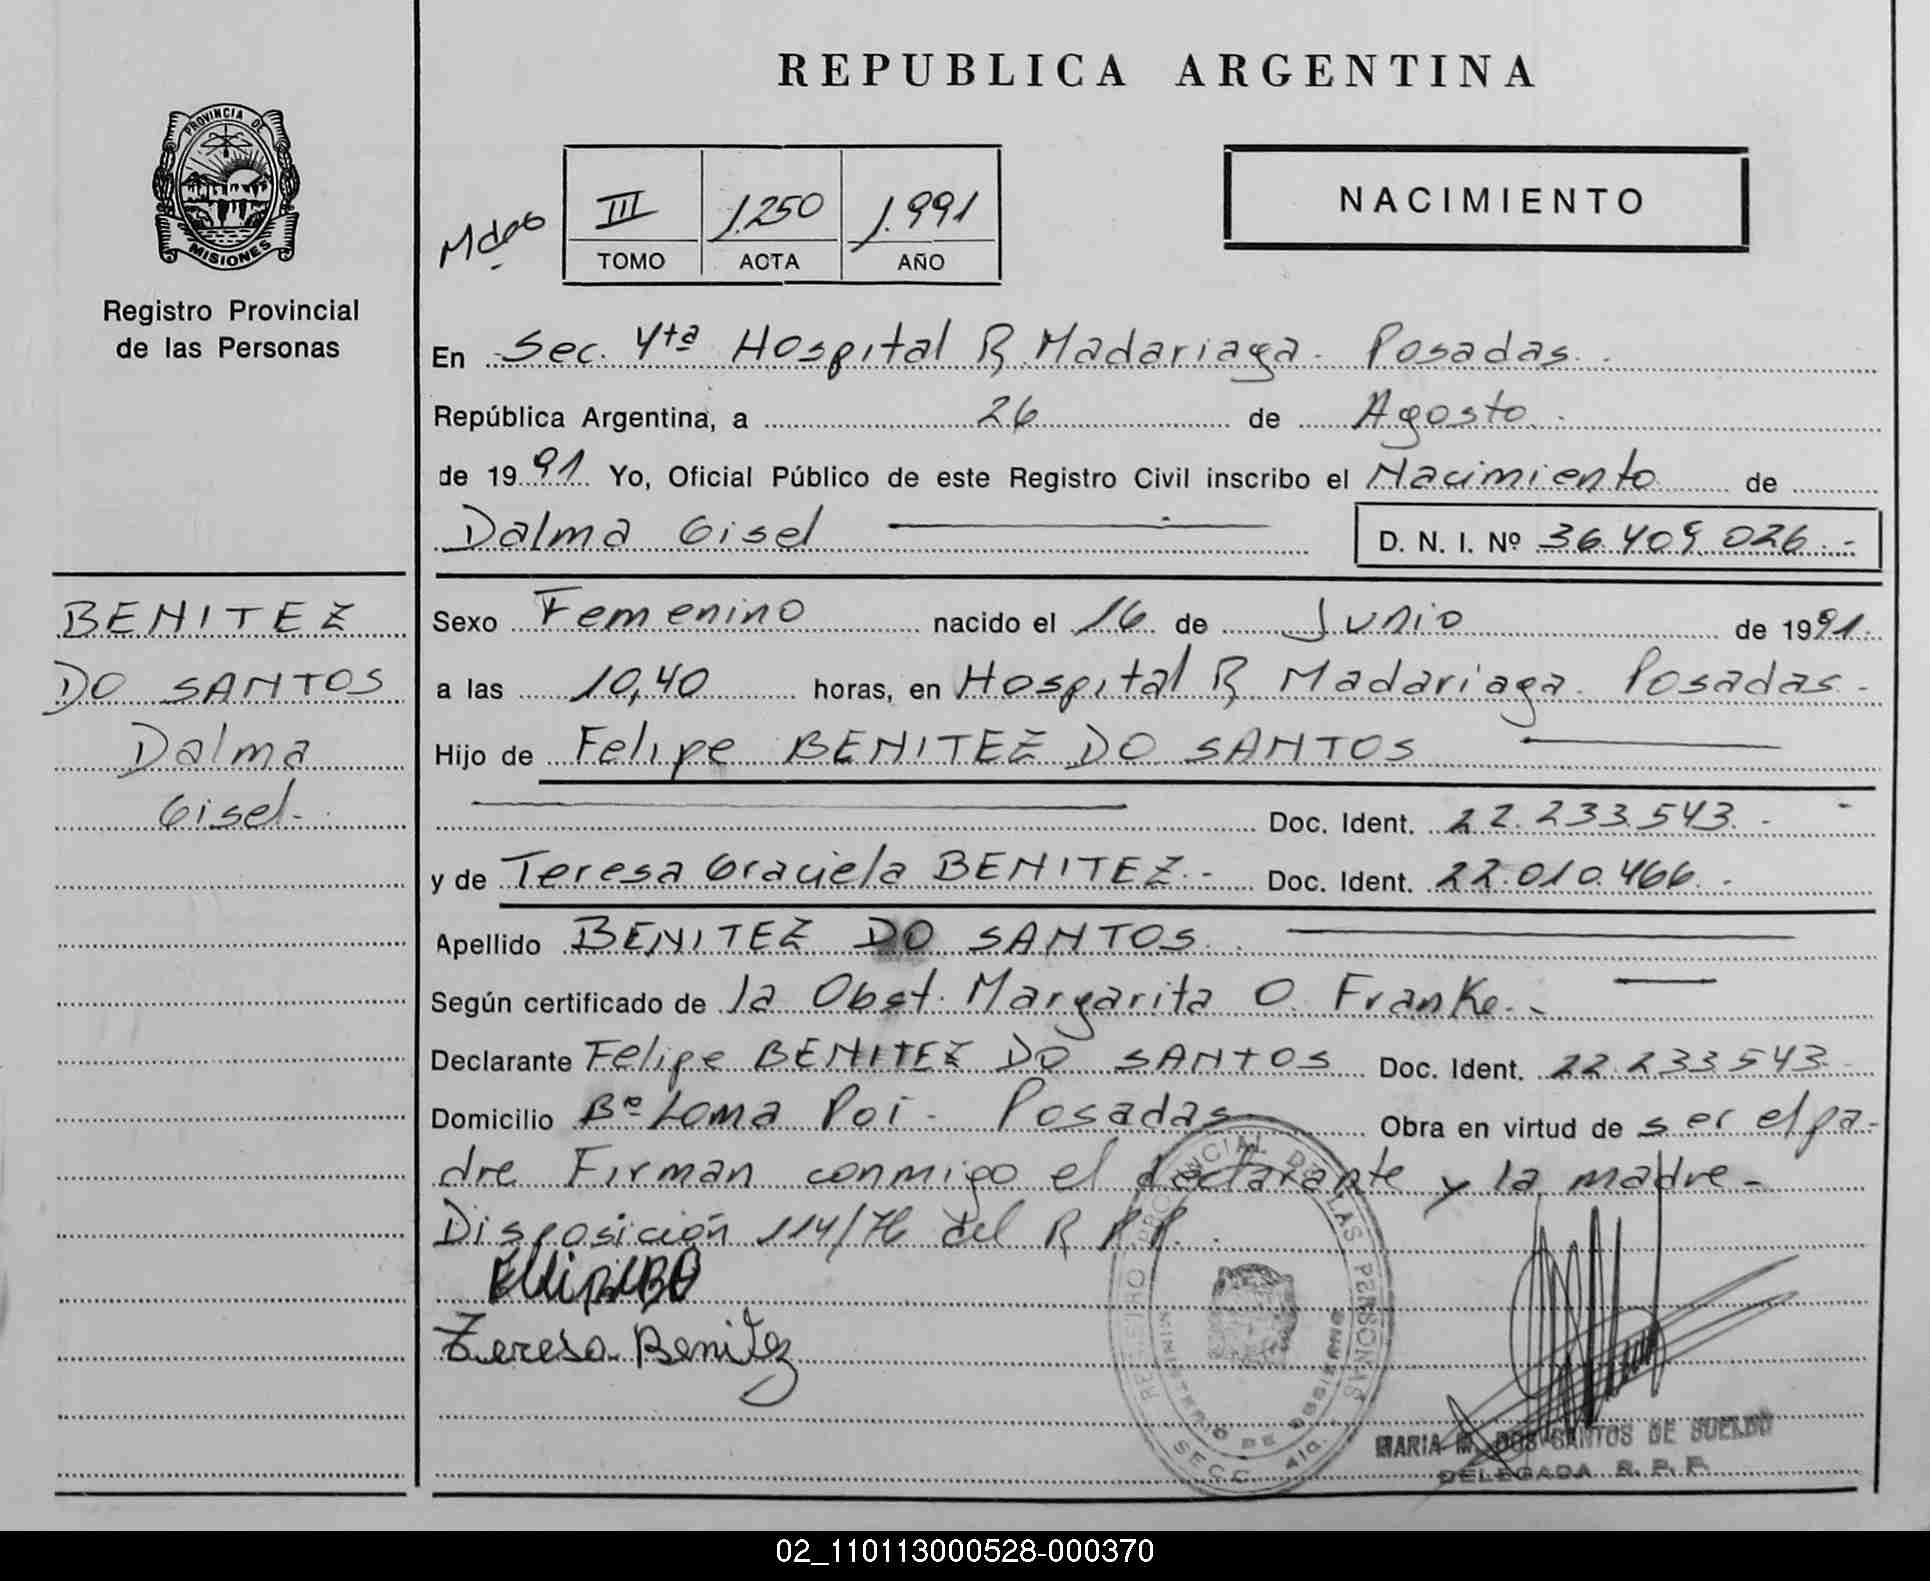 REPUBLICA ARGENTINA
PROVINCIA DE
MISIONES
Registro Provincial
de las Personas
III 1.250 1.991
TOMO ACTA AÑO
NACIMIENTO
En Sec. 4ta Hospital R. Madariaga. Posadas.
República Argentina, a 26 de Agosto.
de 1991 Yo, Oficial Público de este Registro Civil inscribo el Nacimiento de
Dalma Gisel D. N. I. Nº 36.409.026.-
BENITEZ
DO SANTOS
Dalma
Gisel.-
Sexo Femenino nacido el 16 de Junio de 1991.
a las 10,40 horas, en Hospital R. Madariaga. Posadas.-
Hijo de Felipe BENITEZ DO SANTOS
Doc. Ident. 22.233.543.-
y de Teresa Graciela BENITEZ.- Doc. Ident. 22.010.466.-
Apellido BENITEZ DO SANTOS.
Según certificado de la Obst. Margarita O. Franke.-
Declarante Felipe BENITEZ DO SANTOS Doc. Ident. 22.233.543.-
Domicilio Bº Loma Poi - Posadas Obra en virtud de ser el pa-
dre Firman conmigo el declarante y la madre.-
Disposición 114/76 del R.P.P.
Teresa Benitez
REGISTRO PROVINCIAL DE LAS PERSONAS
MINISTERIO DE
SECC. 4ta.
MARIA M. DOS SANTOS DE SUELDO
DELEGADA R. P. P.
02_110113000528-000370